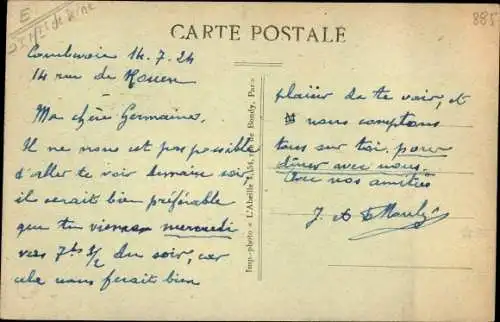 E
885
CARTE POSTALE
Courbevoie 14.7.24
14 rue de Rouen
Ma chère Germaine,
Il ne nous est pas possible
d'aller te voir demain soir
il serait bien préférable
que tu viennes mercredi
vers 7h 1/2 du soir, car
cela nous ferait bien
Imp.-photo « L'Abeille », 54, rue de Bondy, Paris
plaisir de te voir, et
nous comptons
tous sur toi pour
dîner avec nous.
Avec nos amitiés
J. et